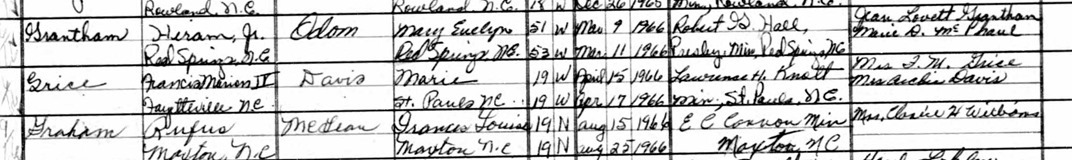 Rowland, N.C. Rowland N.C. W Dec 26 1965 Min, Rowland, N.C.
Jean Lovett Grantham
Grantham Hiram, Jr. Odom Mary Evelyn 51 W Mar 9 1966 Robert G. Hall, Marie D. McPhaul
Red Springs, N.C. Red Springs, N.C. 53 W Mar. 11 1966 Presby. Min, Red Springs, N.C.
Mrs F. M. Grice
Grice Francis Marion II Davis Marie 19 W April 15 1966 Lawrence H. Knott Mrs Archie Davis
Fayetteville N.C. St. Pauls N.C. 19 W Apr 17 1966 Min, St. Pauls, N.C.
Graham Rufus McLean Frances Louise 19 N Aug 15 1966 E C Connon Min Mrs, H Williams
Maxton, N.C Maxton N.C 19 N Aug 25 1966 Maxton, NC